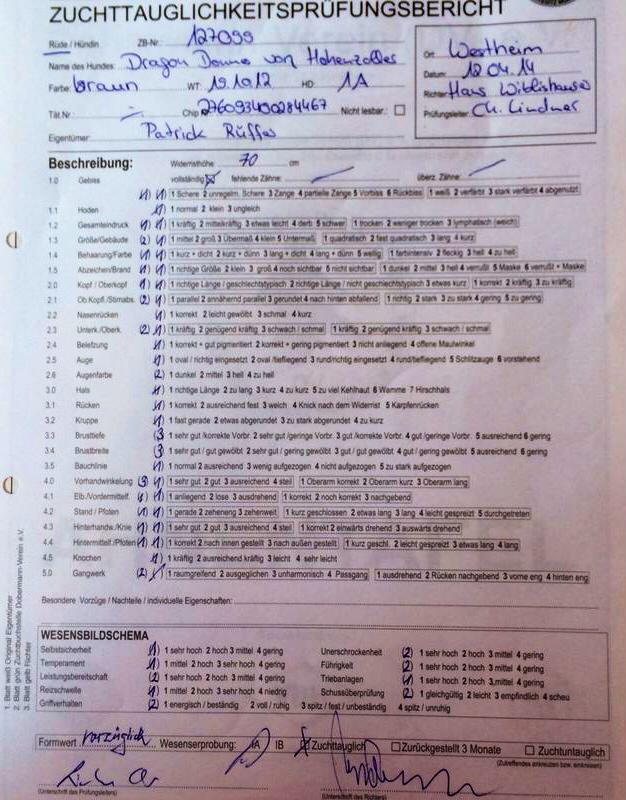 ZUCHTTAUGLICHKEITSPRÜFUNGSBERICHT
Rüde / Hündin ZB-Nr.: 127099
Name des Hundes: Dragon Donna von Hohenzolles
Farbe: braun WT: 19.10.12 HD: 1A
Tät.Nr.: Chip Nicht lesbar: ☐
Eigentümer: Patrick Rüffer
Ort: Westheim
Datum: 12.04.14
Richter: Hans Wiblishauser
Prüfungsleiter: Ch. Lindner
Beschreibung: Widerristhöhe 70 cm
1.0 Gebiss vollständig ☒ fehlende Zähne: überz. Zähne:
1) 1) 1 Schere 2 unregelm. Schere 3 Zange 4 partielle Zange 5 Vorbiss 6 Rückbiss 1 weiß 2 verfärbt 3 stark verfärbt 4 abgenutzt
1.1 Hoden 1) 1 normal 2 klein 3 ungleich
1.2 Gesamteindruck 1) 1) 1 kräftig 2 mittelkräftig 3 etwas leicht 4 derb 5 schwer 1 trocken 2 weniger trocken 3 lymphatisch (weich)
1.3 Größe/Gebäude (2) 1) 1 mittel 2 groß 3 Übermaß 4 klein 5 Untermaß 1 quadratisch 2 fast quadratisch 3 lang 4 kurz
1.4 Behaarung/Farbe 1) 1) 1 kurz + dicht 2 kurz + dünn 3 lang + dicht 4 lang + dünn 5 wellig 1 farbintensiv 2 fleckig 3 hell 4 zu hell
1.5 Abzeichen/Brand 1) 1) 1 richtige Größe 2 klein 3 groß 4 noch sichtbar 5 nicht sichtbar 1 dunkel 2 mittel 3 hell 4 verrußt 5 Maske 6 verrußt + Maske
2.0 Kopf / Oberkopf 1) 1) 1 richtige Länge / geschlechtstypisch 2 richtige Länge / nicht geschlechtstypisch 3 etwas kurz 1 korrekt 2 kräftig 3 zu kräftig
2.1 Ob.Kopf./Stirnabs. (2) 1) 1 parallel 2 annähernd parallel 3 gerundet 4 nach hinten abfallend 1 richtig 2 stark 3 zu stark 4 gering 5 zu gering
2.2 Nasenrücken 1) 1 korrekt 2 leicht gewölbt 3 schmal 4 kurz
2.3 Unterk./Oberk. (2) 1) 1 kräftig 2 genügend kräftig 3 schwach / schmal 1 kräftig 2 genügend kräftig 3 schwach / schmal
2.4 Belefzung 1) 1 korrekt + gut pigmentiert 2 korrekt + gering pigmentiert 3 nicht anliegend 4 offene Maulwinkel
2.5 Auge 1) 1 oval / richtig eingesetzt 2 oval /tiefliegend 3 rund/richtig eingesetzt 4 rund/tiefliegend 5 Schlitzauge 6 vorstehend
2.6 Augenfarbe (2) 1 dunkel 2 mittel 3 hell 4 zu hell
3.0 Hals 1) 1 richtige Länge 2 zu lang 3 kurz 4 zu kurz 5 zu viel Kehlhaut 6 Wamme 7 Hirschhals
3.1 Rücken 1) 1 korrekt 2 ausreichend fest 3 weich 4 Knick nach dem Widerrist 5 Karpfenrücken
3.2 Kruppe 1) 1 fast gerade 2 etwas abgerundet 3 zu stark abgerundet 4 zu kurz
3.3 Brusttiefe (3 1 sehr gut /korrekte Vorbr. 2 sehr gut /geringe Vorbr. 3 gut /korrekte Vorbr. 4 gut /geringe Vorbr. 5 ausreichend 6 gering
3.4 Brustbreite (3 1 sehr gut / gut gewölbt 2 sehr gut / gering gewölbt 3 gut / gut gewölbt 4 gut / gering gewölbt 5 ausreichend 6 gering
3.5 Bauchlinie 1) 1 normal 2 ausreichend 3 wenig aufgezogen 4 nicht aufgezogen 5 zu stark aufgezogen
4.0 Vorhandwinkelung (3) 1) 1 sehr gut 2 gut 3 ausreichend 4 steil 1 Oberarm korrekt 2 Oberarm kurz 3 Oberarm lang
4.1 Elb./Vordermittelf. 1) 1 anliegend 2 lose 3 ausdrehend 1 korrekt 2 noch korrekt 3 nachgebend
4.2 Stand / Pfoten 1) 1) 1 gerade 2 zeheneng 3 zehenweit 1 kurz geschlossen 2 etwas lang 3 lang 4 leicht gespreizt 5 durchgetreten
4.3 Hinterhandw./Knie 1) 1) 1 sehr gut 2 gut 3 ausreichend 4 steil 1 korrekt 2 einwärts drehend 3 auswärts drehend
4.4 Hintermittelf./Pfoten 1) 1) 1 korrekt 2 nach innen gestellt 3 nach außen gestellt 1 kurz geschl. 2 leicht gespreizt 3 etwas lang 4 lang
4.5 Knochen 1) 1 kräftig 2 ausreichend kräftig 3 leicht 4 sehr leicht
5.0 Gangwerk (2) 1) 1 raumgreifend 2 ausgeglichen 3 unharmonisch 4 Passgang 1 ausdrehend 2 Rücken nachgebend 3 vorne eng 4 hinten eng
Besondere Vorzüge / Nachteile / individuelle Eigenschaften:
WESENSBILDSCHEMA
Selbstsicherheit 1) 1 sehr hoch 2 hoch 3 mittel 4 gering Unerschrockenheit (2) 1 sehr hoch 2 hoch 3 mittel 4 gering
Temperament 1) 1 mittel 2 hoch 3 sehr hoch 4 gering Führigkeit (2) 1 sehr hoch 2 hoch 3 mittel 4 gering
Leistungsbereitschaft (2) 1 sehr hoch 2 hoch 3 mittel 4 gering Triebanlagen 1) 1 sehr hoch 2 hoch 3 mittel 4 gering
Reizschwelle 1) 1 mittel 2 hoch 3 sehr hoch 4 niedrig Schussüberprüfung (2) 1 gleichgültig 2 leicht 3 empfindlich 4 scheu
Griffverhalten (2) 1 energisch / beständig 2 voll / ruhig 3 spitz / fest / unbeständig 4 spitz / unruhig
Formwert vorzüglich Wesenserprobung: IA IB ☒ Zuchttauglich ☐ Zurückgestellt 3 Monate ☐ Zuchtuntauglich
(Zutreffendes ankreuzen bzw. einkreisen)
(Unterschrift des Prüfungsleiters) (Unterschrift des Richters)
1. Blatt weiß Original Eigentümer
2. Blatt grün Zuchtbuchstelle Dobermann-Verein e.V.
3. Blatt gelb Richter